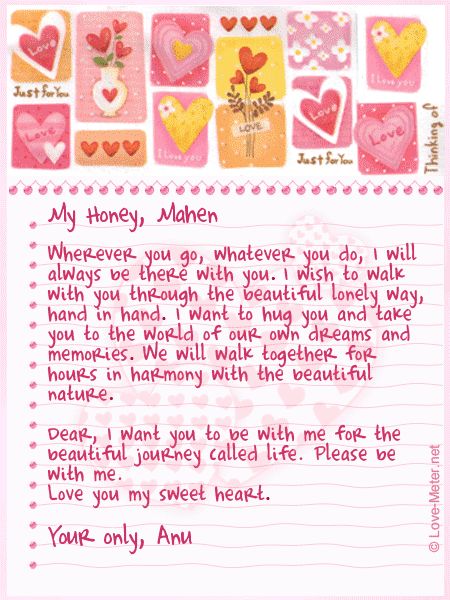 Love
Just for You
Love
I love you
LOVE
I love you
Love
Just for You
I love you
Love
Love
Thinking of
My Honey, Mahen
Wherever you go, whatever you do, I will
always be there with you. I wish to walk
with you through the beautiful lonely way,
hand in hand. I want to hug you and take
you to the world of our own dreams and
memories. We will walk together for
hours in harmony with the beautiful
nature.
Dear, I want you to be with me for the
beautiful journey called life. Please be
with me.
Love you my sweet heart.
Your only, Anu
© Love-Meter.net